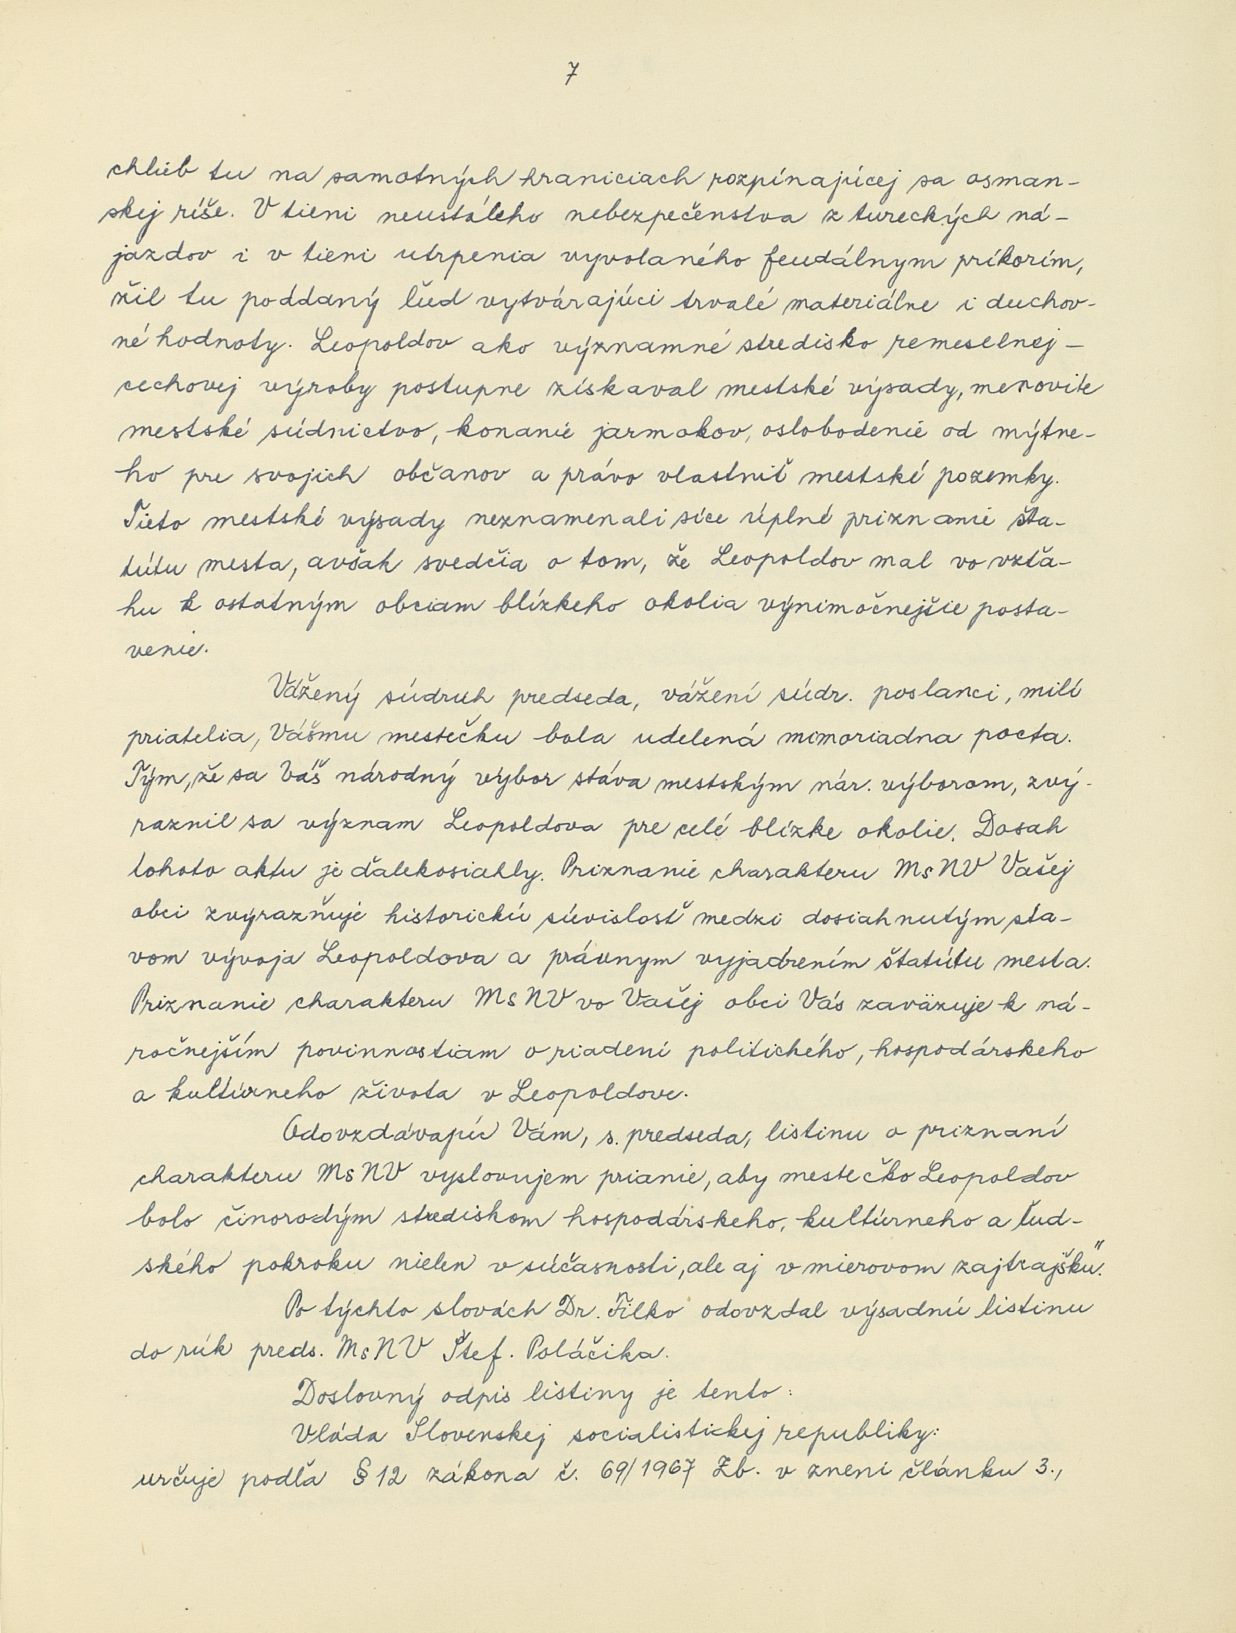 7
chlieb tu na samotných hraniciach rozpínajúcej sa osman-
skej ríše. V tieni neustáleho nebezpečenstva z tureckých ná-
jazdov i v tieni utrpenia vyvolaného feudálnym príkorím,
žil tu poddaný ľud vytvárajúci trvalé materiálne i duchov-
né hodnoty. Leopoldov ako významné stredisko remeselnej-
cechovej výroby postupne získaval mestské výsady, menovite
mestské súdnictvo, konanie jarmokov, oslobodenie od mýtne-
ho pre svojich občanov a právo vlastniť mestské pozemky.
Tieto mestské výsady neznamenali síce úplné priznanie šta-
tútu mesta, avšak svedčia o tom, že Leopoldov mal vo vzťa-
hu k ostatným obciam blízkeho okolia výnimočnejšie posta-
venie.
Vážený súdruh predseda, vážení súdr. poslanci, milí
priatelia, Vášmu mestečku bola udelená mimoriadna pocta.
Tým, že sa Váš národný výbor stáva mestským nár. výborom, zvý-
raznil sa význam Leopoldova pre celé blízke okolie. Dosah
tohoto aktu je ďalekosiahly. Priznanie charakteru MsNV Vašej
obci zvýrazňuje historickú súvislosť medzi dosiahnutým sta-
vom vývoja Leopoldova a právnym vyjadrením štatútu mesta.
Priznanie charakteru MsNV vo Vašej obci Vás zaväzuje k ná-
ročnejším povinnostiam o riadení politického, hospodárskeho
a kultúrneho života v Leopoldove.
Odovzdávajúc Vám, s. predseda, listinu o priznaní
charakteru MsNV vyslovujem prianie, aby mestečko Leopoldov
bolo činorodým strediskom hospodárskeho, kultúrneho a ľud-
ského pokroku nielen v súčasnosti, ale aj v mierovom zajtrajšku".
Po týchto slovách Dr. Filko odovzdal výsadnú listinu
do rúk preds. MsNV Štef. Poláčika.
Doslovný odpis listiny je tento:
Vláda Slovenskej socialistickej republiky:
určuje podľa § 12 zákona č. 69/1967 Zb. v znení článku 3.,